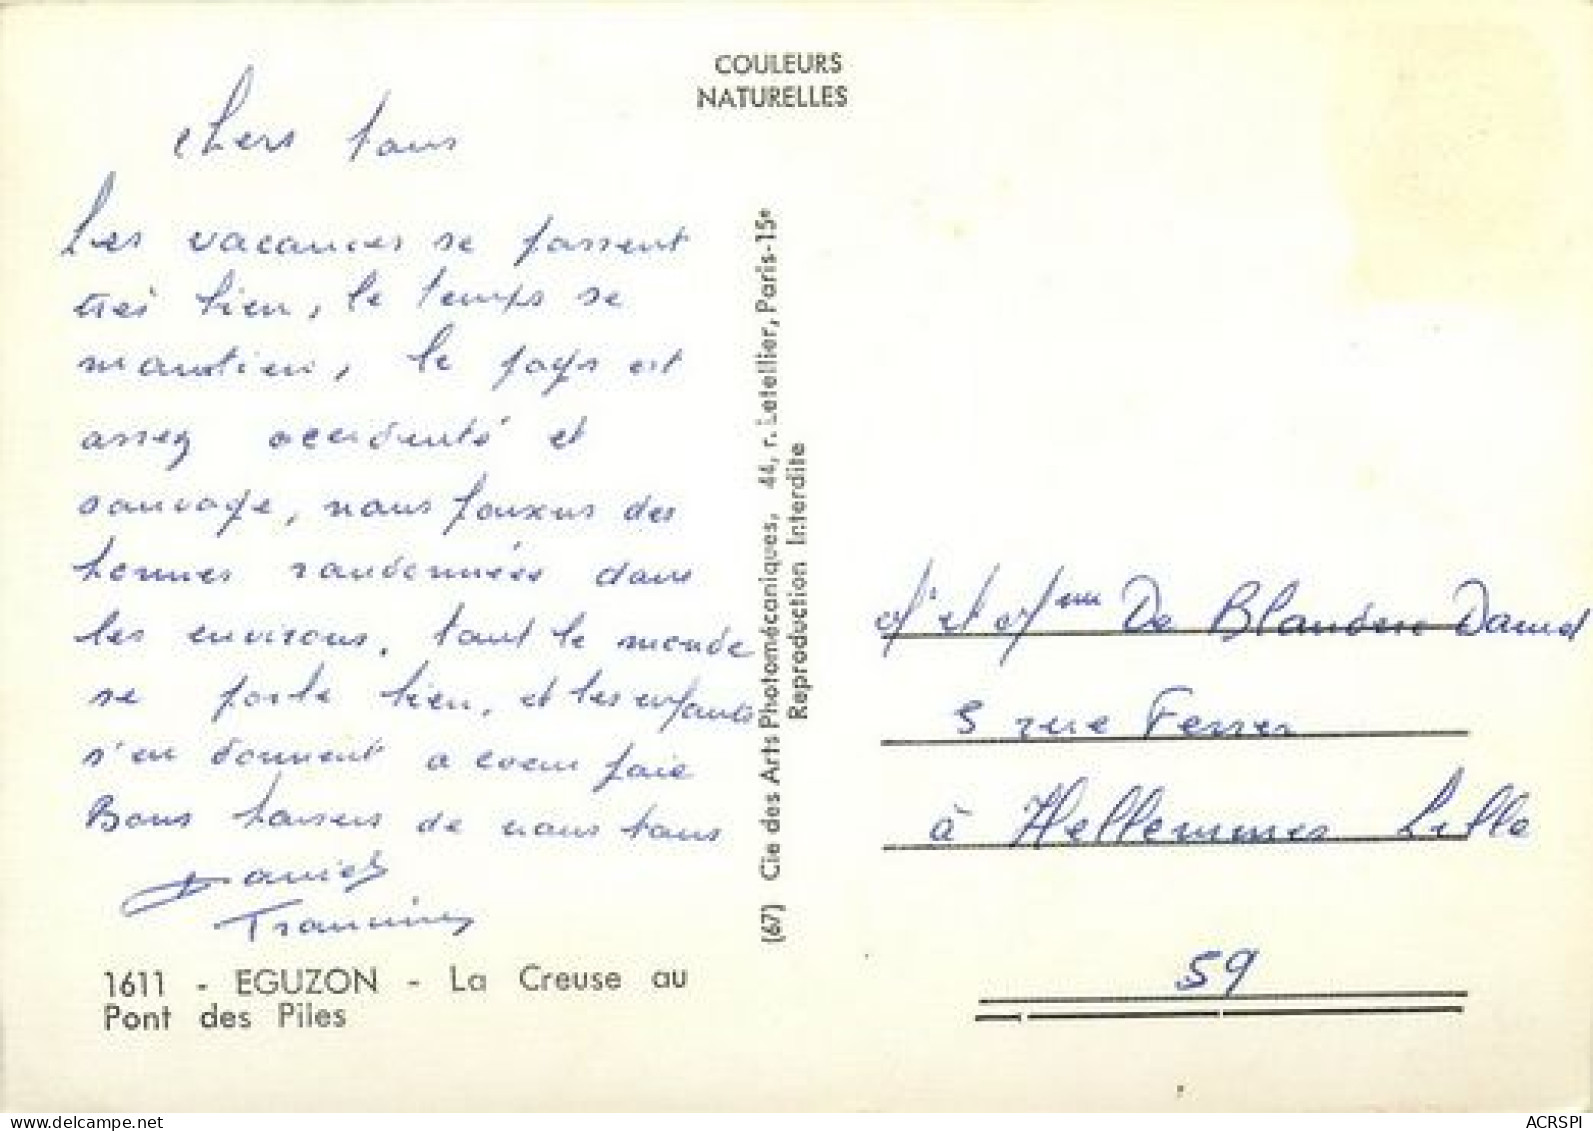 COULEURS
NATURELLES
Chers tous
Les vacances se passent
très bien, le temps se
maintien, le pays est
assez accidenté et
sauvage, nous faisons des
bonnes randonnées dans
les environs, tout le monde
se porte bien, et les enfants
s'en donnent a coeur joie
Bons baisers de nous tous
Daniel
1611 - EGUZON - La Creuse au
Pont des Piles
(67) Cie des Arts Photomécaniques, 44, r. Letellier, Paris-15e
Reproduction Interdite
Mr et Mme De Blandere David
5 rue Ferrer
à Hellemmes Lille
59
delcampe.net
ACRSPI